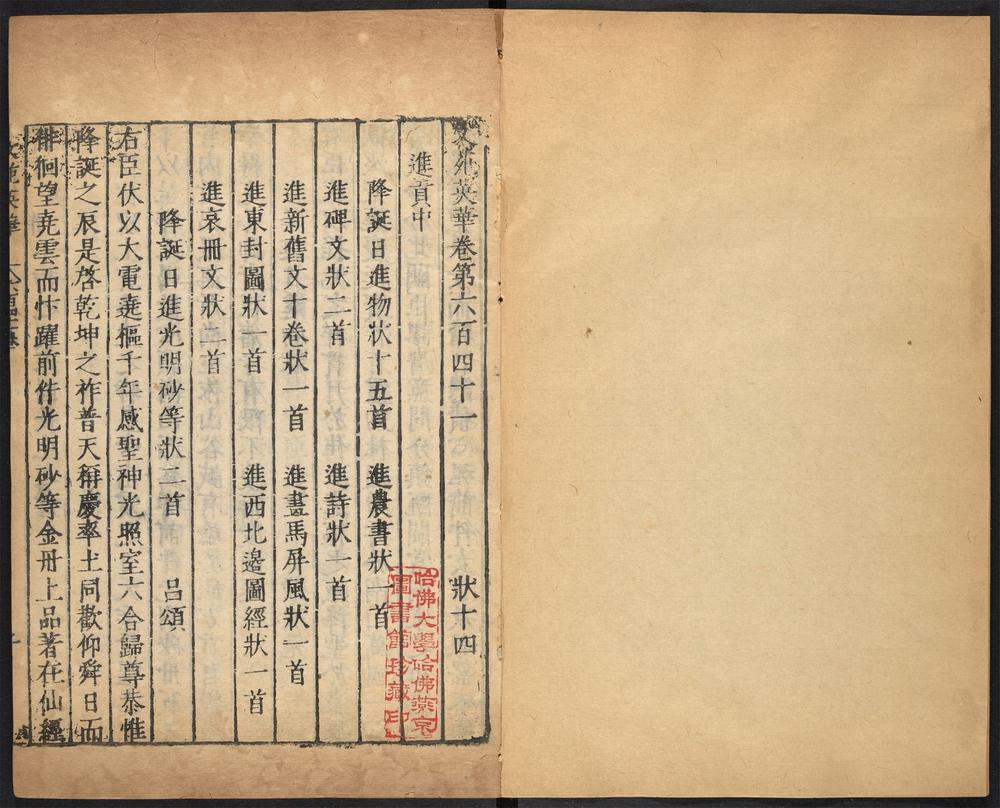 文苑英華卷第六百四十一 狀十四
進貢中
降誕日進物狀十五首 進農書狀一首
進碑文狀二首 進詩狀一首
進新舊文十卷狀一首 進畫馬屏風狀一首
進東封圖狀一首 進西北邊圖經狀一首
進哀冊文狀二首
降誕日進光明砂等狀二首 呂頌
右臣伏以大電遶樞千年感聖神光照室六合歸尊恭惟
降誕之辰是啓乾坤之祚普天稱慶率土同歡仰舜日而
徘徊望堯雲而忭躍前件光明砂等金丹上品著在仙經
文苑英華
哈佛大學哈佛燕京
圖書館珍藏印